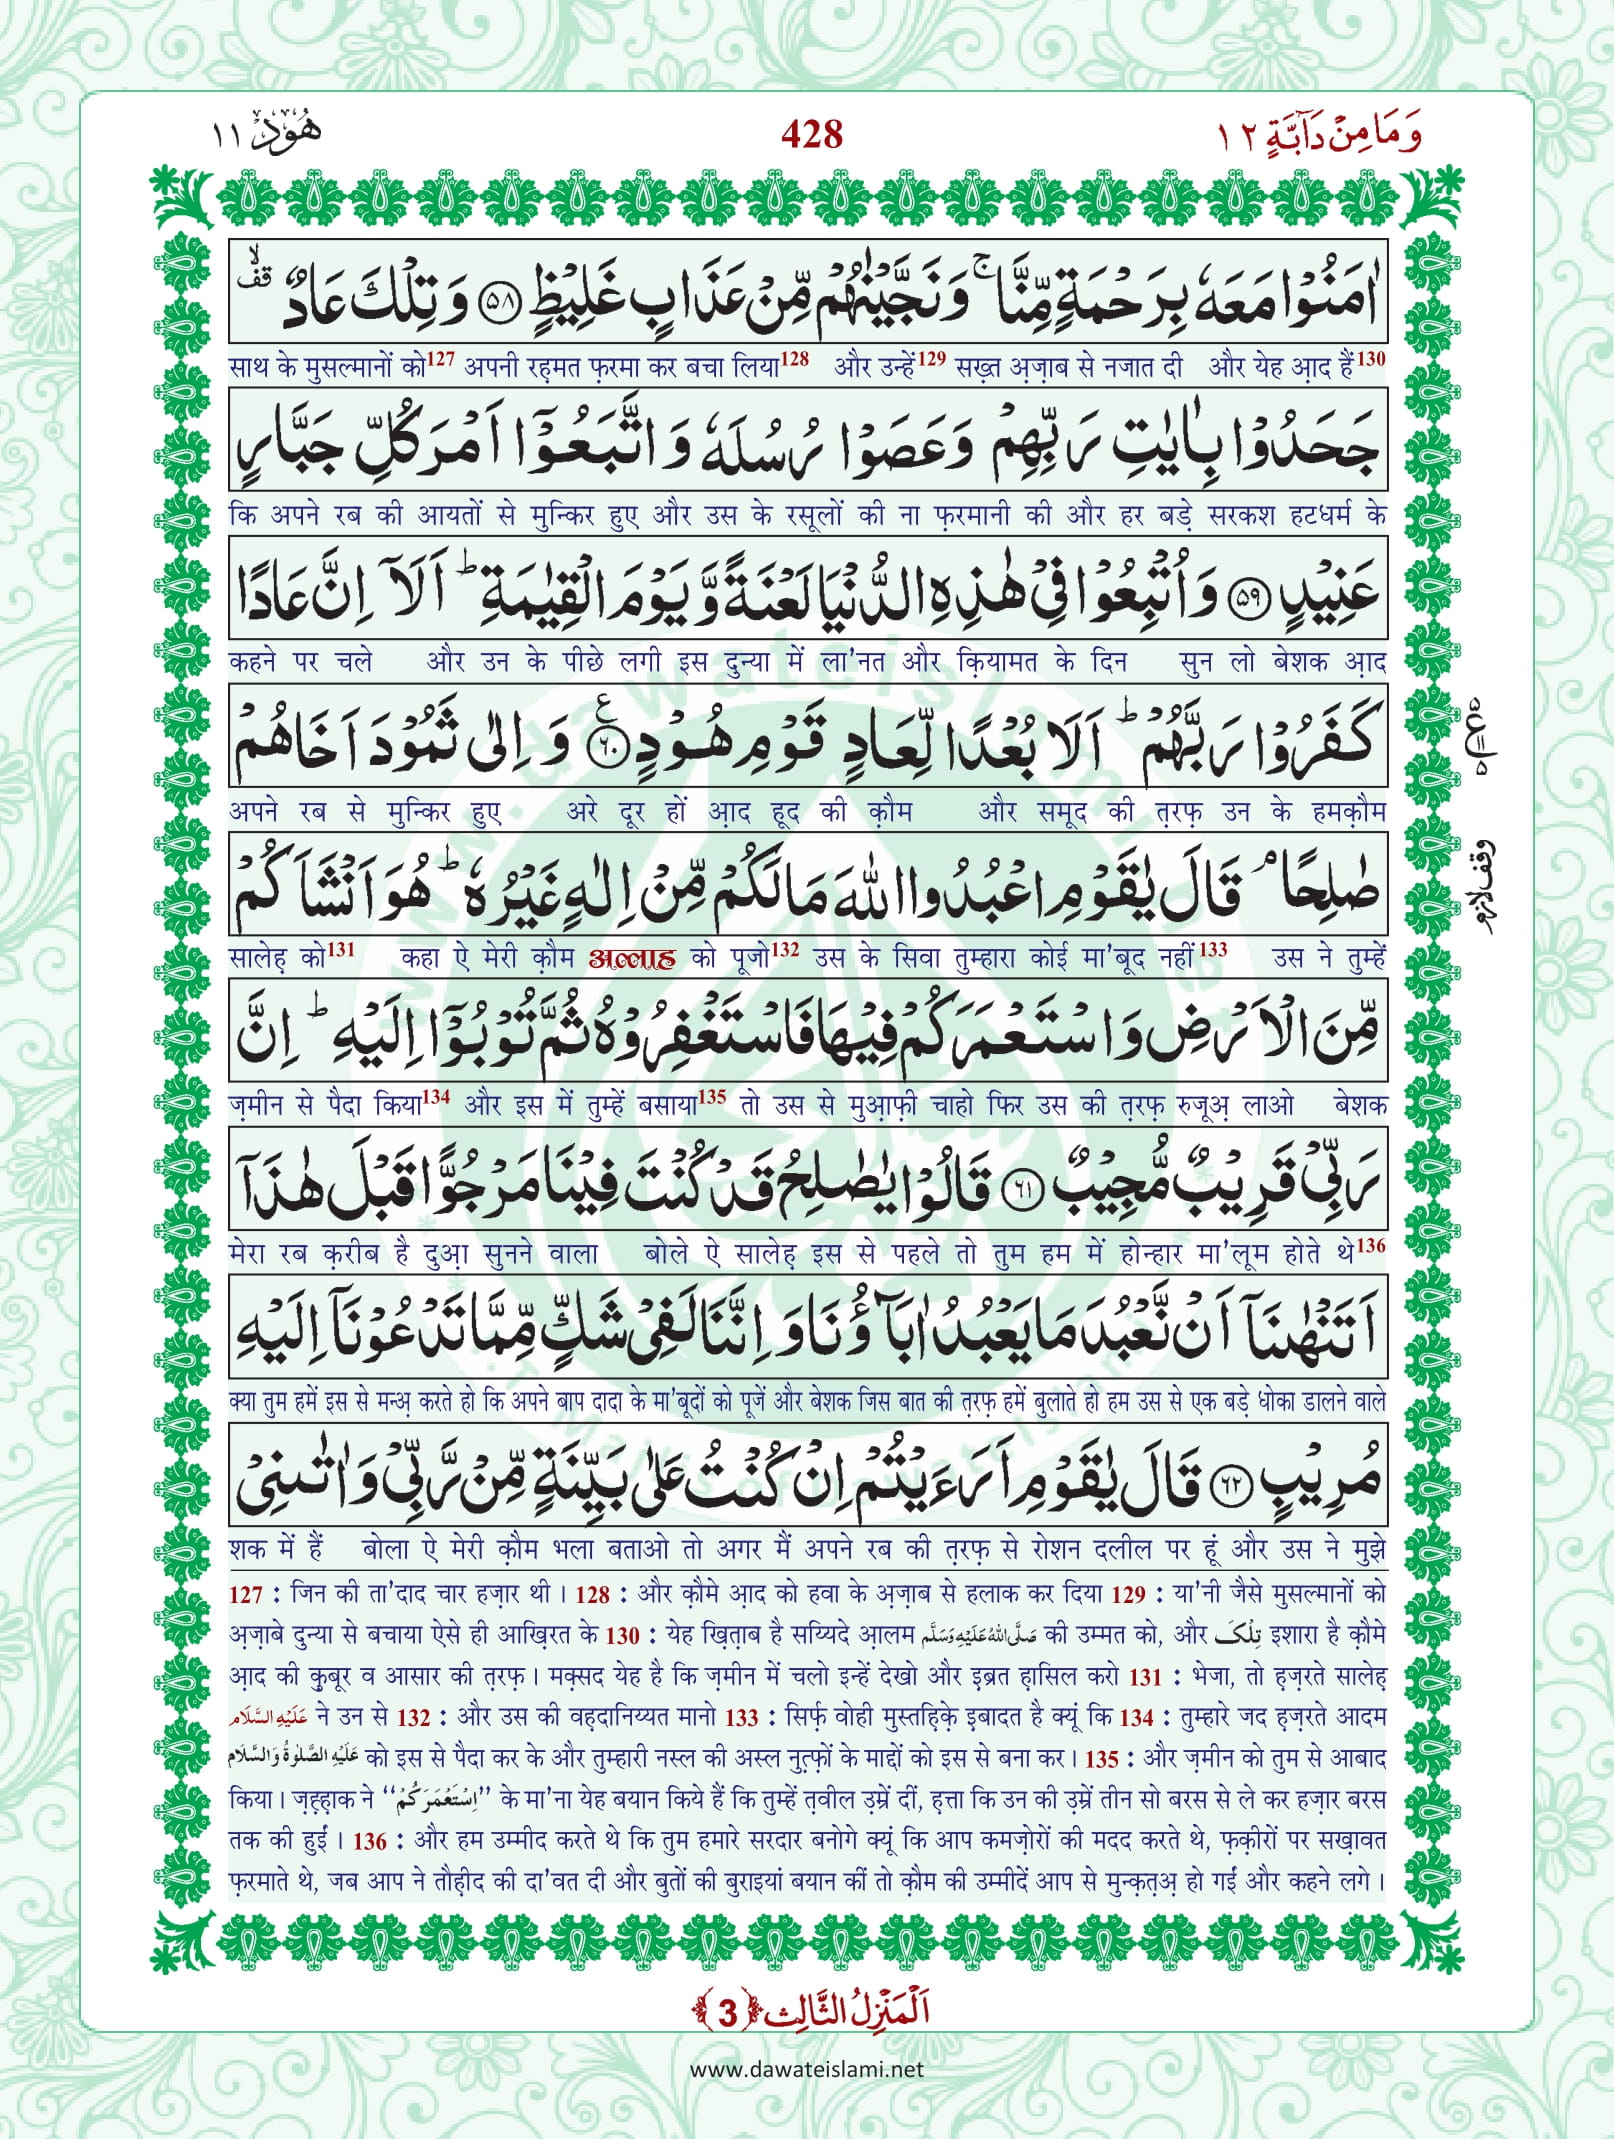 وَمَا مِنْ دَآبَّةٍ ١٢
428
هُوْد ١١
اٰمَنُوْا مَعَهٗ بِرَحْمَةٍ مِّنَّا ۚ وَنَجَّيْنٰهُمْ مِّنْ عَذَابٍ غَلِيْظٍ ﴿۵۸﴾ وَتِلْكَ عَادٌ ۙ قف
साथ के मुसल्मानों को127 अपनी रह़मत फ़रमा कर बचा लिया128 और उन्हें129 सख़्त अ़ज़ाब से नजात दी और येह आ़द हैं130
جَحَدُوْا بِاٰيٰتِ رَبِّهِمْ وَعَصَوْا رُسُلَهٗ وَاتَّبَعُوْۤا اَمْرَ كُلِّ جَبَّارٍ
कि अपने रब की आयतों से मुन्किर हुए और उस के रसूलों की ना फ़रमानी की और हर बड़े सरकश हटधर्म के
عَنِيْدٍ ﴿۵۹﴾ وَاُتْبِعُوْا فِيْ هٰذِهِ الدُّنْيَا لَعْنَةً وَّيَوْمَ الْقِيٰمَةِ ؕ اَلَاۤ اِنَّ عَادًا
कहने पर चले और उन के पीछे लगी इस दुन्या में ला'नत और क़ियामत के दिन सुन लो बेशक आ़द
كَفَرُوْا رَبَّهُمْ ؕ اَلَا بُعْدًا لِّعَادٍ قَوْمِ هُوْدٍ ﴿۶۰﴾ ع وَاِلٰى ثَمُوْدَ اَخَاهُمْ
अपने रब से मुन्किर हुए अरे दूर हों आ़द हूद की क़ौम और समूद की त़रफ़ उन के हमक़ौम
صٰلِحًا ۘ قَالَ يٰقَوْمِ اعْبُدُوا اللّٰهَ مَا لَكُمْ مِّنْ اِلٰهٍ غَيْرُهٗ ؕ هُوَ اَنْشَاَكُمْ
وقف لازم
सालेह़ को131 कहा ऐ मेरी क़ौम अल्लाह को पूजो132 उस के सिवा तुम्हारा कोई मा'बूद नहीं133 उस ने तुम्हें
مِّنَ الْاَرْضِ وَاسْتَعْمَرَكُمْ فِيْهَا فَاسْتَغْفِرُوْهُ ثُمَّ تُوْبُوْۤا اِلَيْهِ ؕ اِنَّ
ज़मीन से पैदा किया134 और इस में तुम्हें बसाया135 तो उस से मुआ़फ़ी चाहो फिर उस की त़रफ़ रुजूअ़ लाओ बेशक
رَبِّيْ قَرِيْبٌ مُّجِيْبٌ ﴿۶۱﴾ قَالُوْا يٰصٰلِحُ قَدْ كُنْتَ فِيْنَا مَرْجُوًّا قَبْلَ هٰذَاۤ
मेरा रब क़रीब है दुआ़ सुनने वाला बोले ऐ सालेह़ इस से पहले तो तुम हम में होन्हार मा'लूम होते थे136
اَتَنْهٰىنَاۤ اَنْ نَّعْبُدَ مَا يَعْبُدُ اٰبَآؤُنَا وَاِنَّنَا لَفِيْ شَكٍّ مِّمَّا تَدْعُوْنَاۤ اِلَيْهِ
क्या तुम हमें इस से मन्अ़ करते हो कि अपने बाप दादा के मा'बूदों को पूजें और बेशक जिस बात की त़रफ़ हमें बुलाते हो हम उस से एक बड़े धोका डालने वाले
مُرِيْبٍ ﴿۶۲﴾ قَالَ يٰقَوْمِ اَرَءَيْتُمْ اِنْ كُنْتُ عَلٰى بَيِّنَةٍ مِّنْ رَّبِّيْ وَاٰتٰىنِيْ
शक में हैं बोला ऐ मेरी क़ौम भला बताओ तो अगर मैं अपने रब की त़रफ़ से रोशन दलील पर हूं और उस ने मुझे
127 : जिन की ता'दाद चार हज़ार थी । 128 : और क़ौमे आ़द को हवा के अ़ज़ाब से हलाक कर दिया 129 : या'नी जैसे मुसल्मानों को
अ़ज़ाबे दुन्या से बचाया ऐसे ही आख़िरत के 130 : येह ख़ित़ाब है सय्यिदे आ़लम صَلَّى اللهُ عَلَيْهِ وَسَلَّم की उम्मत को, और تِلْكَ इशारा है क़ौमे
आ़द की क़ुबूर व आसार की त़रफ़ । मक़्सद येह है कि ज़मीन में चलो इन्हें देखो और इब्रत ह़ासिल करो 131 : भेजा, तो ह़ज़रते सालेह़
عَلَيْهِ السَّلَام ने उन से 132 : और उस की वह़दानिय्यत मानो 133 : सिर्फ़ वोही मुस्तह़िक़े इबादत है क्यूं कि 134 : तुम्हारे जद ह़ज़रते आदम
عَلَيْهِ الصَّلٰوةُ وَالسَّلَام को इस से पैदा कर के और तुम्हारी नस्ल की अस्ल नुत़्फ़ों के माद्दों को इस से बना कर । 135 : और ज़मीन को तुम से आबाद
किया । ज़ह़्ह़ाक ने ‘‘اِسْتَعْمَرَكُمْ’’ के मा'ना येह बयान किये हैं कि तुम्हें त़वील उ़म्रें दीं, ह़त्ता कि उन की उ़म्रें तीन सो बरस से ले कर हज़ार बरस
तक की हुईं । 136 : और हम उम्मीद करते थे कि तुम हमारे सरदार बनोगे क्यूं कि आप कमज़ोरों की मदद करते थे, फ़क़ीरों पर सख़ावत
फ़रमाते थे, जब आप ने तौह़ीद की दा'वत दी और बुतों की बुराइयां बयान कीं तो क़ौम की उम्मीदें आप से मुन्क़त़अ़ हो गईं और कहने लगे ।
اَلْمَنْزِلُ الثَّالِث ﴿3﴾
www.dawateislami.net